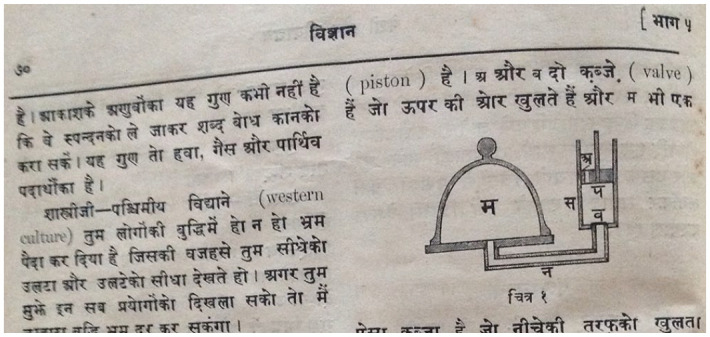 विज्ञान
[ भाग ५
७०
है। आकाशके अणुवोंका यह गुण कभी नहीं है
कि वे स्पन्दनको ले जाकर शब्द बोध कानको
करा सकें। यह गुण तो हवा, गैस और पार्थिव
पदार्थोंका है।
शास्त्रीजी—पश्चिमीय विद्याने (western
culture) तुम लोगोंकी बुद्धिमें हो न हो भ्रम
पैदा कर दिया है जिसकी वजहसे तुम सीधेको
उलटा और उलटेको सीधा देखते हो। अगर तुम
मुझे इन सब प्रयोगोंको दिखला सको तो मैं
भ्रम दूर कर सकूंगा।
( piston ) है। अ और व दो क़ब्जे ( valve )
हैं जो ऊपर की ओर खुलते हैं और म भी एक
म
स
अ
प
व
न
चित्र १
कब्जा है जो नीचेकी तरफको खुलता